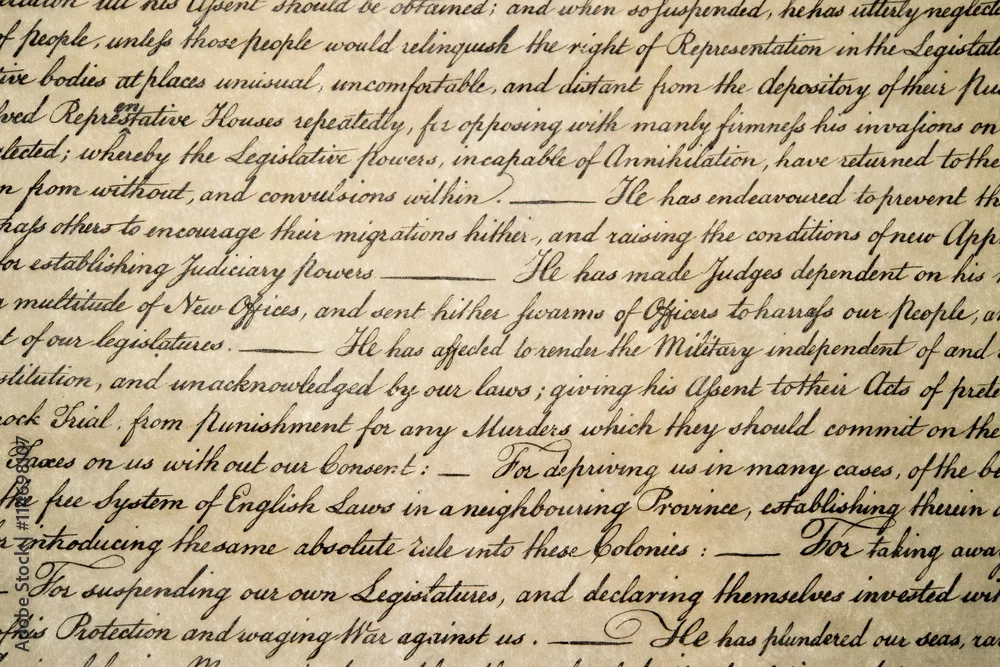 till his Assent should be obtained; and when so suspended, he has utterly neglect
of people, unless those people would relinquish the right of Representation in the Legislat
tive bodies at places unusual, uncomfortable, and distant from the depository of their Pu
lved Representative Houses repeatedly, for opposing with manly firmness his invasions on
elected; whereby the Legislative powers, incapable of Annihilation, have returned to the
n from without, and convulsions within. — He has endeavoured to prevent th
pass others to encourage their migrations hither, and raising the conditions of new App
for establishing Judiciary powers — He has made Judges dependent on his
a multitude of New Offices, and sent hither swarms of Officers to harrass our People, a
t of our legislatures. — He has affected to render the Military independent of and
stitution, and unacknowledged by our laws; giving his Assent to their Acts of prete
ock Trial, from Punishment for any Murders which they should commit on the
Taxes on us without our Consent: — For depriving us in many cases, of the be
the free System of English Laws in a neighbouring Province, establishing therein a
r introducing the same absolute rule into these Colonies: — For taking awa
— For suspending our own Legislatures, and declaring themselves invested wi
of his Protection and waging War against us. — He has plundered our seas, ra
Adobe Stock | #112698107